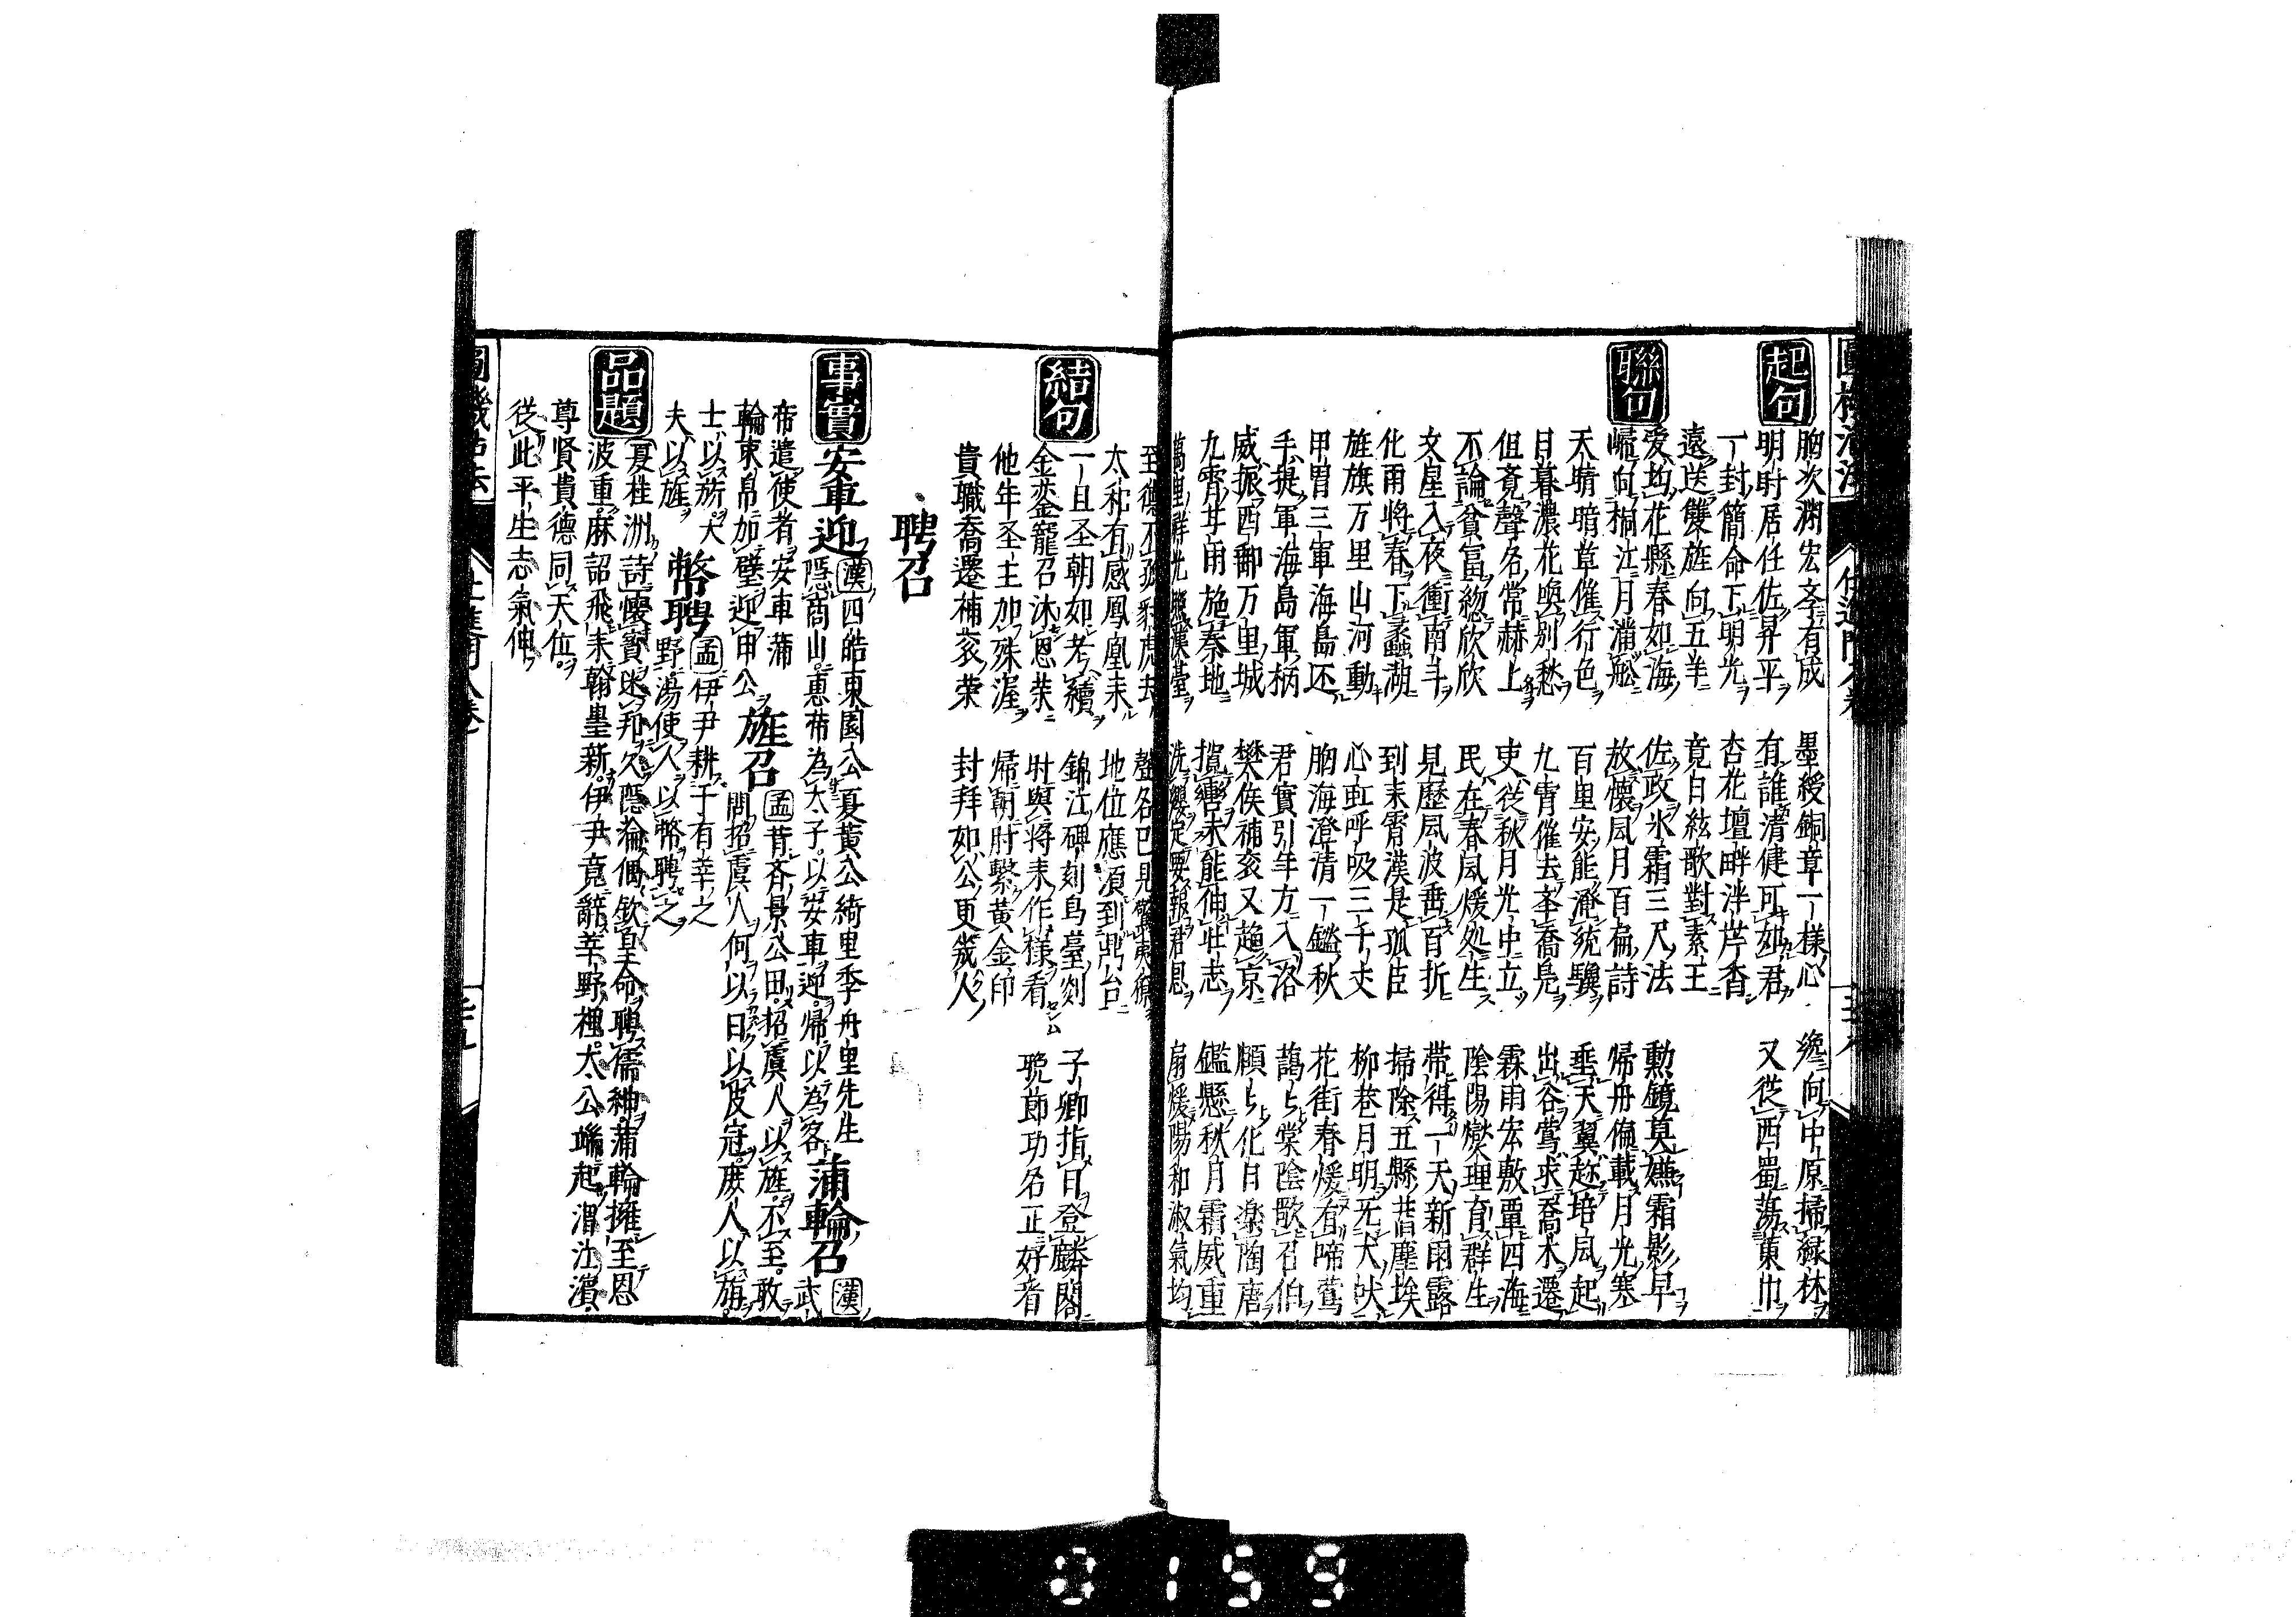 起句
胸次淵宏孝有成　墨綬銅章一樣心　纔向中原掃緑林
明时居任佐昇平　有誰清健可如君　又從西蜀蕩黄巾
一封簡命下明光　杏花壇畔泮芹香
遠送雙旌向五羊　竟日絃歌對素王
聯句
愛均花縣春如海　佐政氷霜三尺法　勲鏡莫嫌霜影早
帰向桐江月滿船　放懷風月百扁詩　帰舟偏載月光寒
天晴暗草催行色　百里安能淹驥　垂天翼趂培風起
日暮濃花喚別愁　九霄催去李喬鳧　出谷鶯求喬木遷
但竟聲名常赫上　吏從秋月光中立　霖雨宏敷覃四海
不論貧富総欣欣　民在春風煖処生　陰陽爕理育群生
文星入夜衝南斗　見歴風波垂百折　帯得一天新雨露
化雨將春下蠡湖　到来霄漢是孤臣　掃除五縣舊塵埃
旌旗万里山河動　心虹呼吸三千丈　柳巷月明无犬吠
甲冑三軍海島还　胸海澄清一鑑秋　花街春煖有啼鶯
手提軍海島軍柄　君實引年方入洛　藹々棠陰歌召伯
威振西郵万里城　樊侯補衮又趨京　願々化日楽陶唐
九霄甘雨施秦地　攬轡未能伸壮志　鑑懸秋月霜威重
萬里群光照漢臺　洗纓定要報君恩　扇煖陽和淑氣均
至德不孤豺虎去　聲名已見驚東僚
太和有感鳳凰来　地位應須到鼎台
結句
一旦圣朝如考績　錦江碑刻烏臺剡　子卿指日登麟閣
金蓥寵召沐恩荣　时與將来作様看　晩節功名正好看
他年圣主加殊渥　帰朝肘繋黄金印
貴職喬遷補衮荣　封拜如公更幾人
聘召
事實
安車迎　漢　四皓東園公夏黄公綺里季甪里先生
隠商山。惠帝為太子。以安車迎帰以為客　蒲輪召　漢　武
帝遣使者安車蒲
輪束帛加璧迎申公　旌召　孟　昔斉景公田。招虞人以旌。不至。敢
問招虞人何以曰以皮冠。庶人以旃。
士以旂。大
夫以旌　幣聘　孟　伊尹耕于有莘之
野。湯使人以幣聘之
品題
夏桂洲詩　懷寳迷邦久隠淪偶欽皇命聘儒紳。蒲輪擁至恩
波重。麻詔飛来翰墨新。伊尹竟辭莘野裡。太公端起渭江濱。
尊賢貴德同天位。
從此平生志氣伸
0159